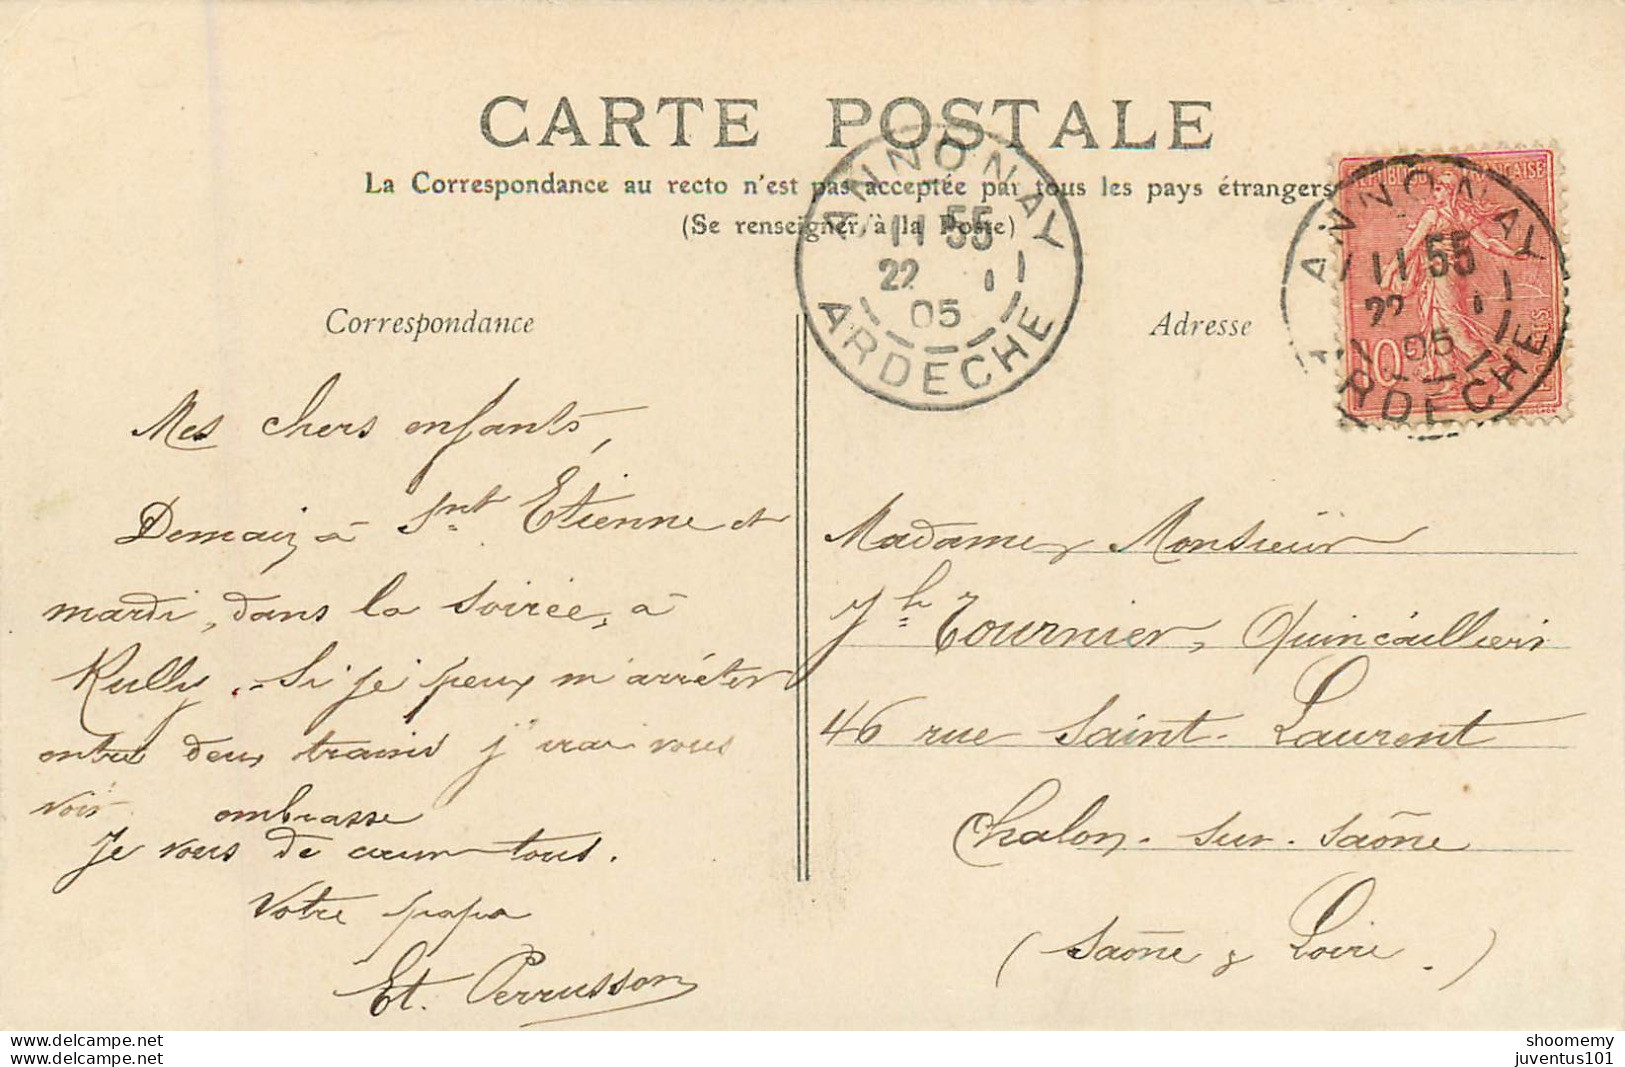 CARTE POSTALE
La Correspondance au recto n'est pas acceptée par tous les pays étrangers
(Se renseigner à la Poste)
Correspondance
Mes chers enfants,
Demain à Snt Etienne et
mardi, dans la soirée, à
Rully. - Si je peux m'arrêter
entre deux trains j'irai vous
voir. embrasse
Je vous de cœur tous.
Votre papa
Et. Perrusson
ANNONAY
11 55
22 1
05
ARDECHE
Adresse
REPUBLIQUE FRANÇAISE
10
POSTES
ANNONAY
11 55
22 1
05
ARDECHE
Madame & Monsieur
Jh Tournier, Quincailliers
46 rue Saint-Laurent
Chalon-sur-Saône
(Saône & Loire.)
Delcampe.net
Delcampe.net
shoomemy
juventus101